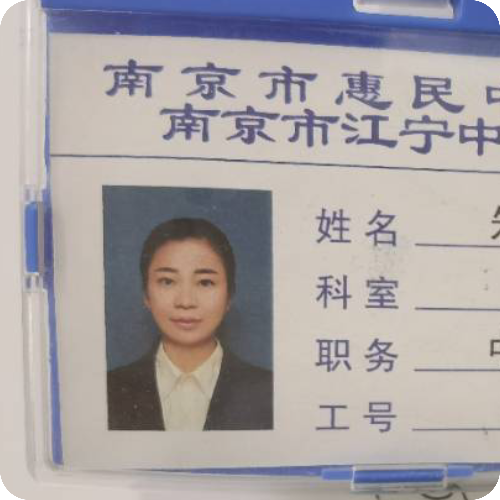 南京市惠民中
南京市江宁中
姓名
科室
职务
工号